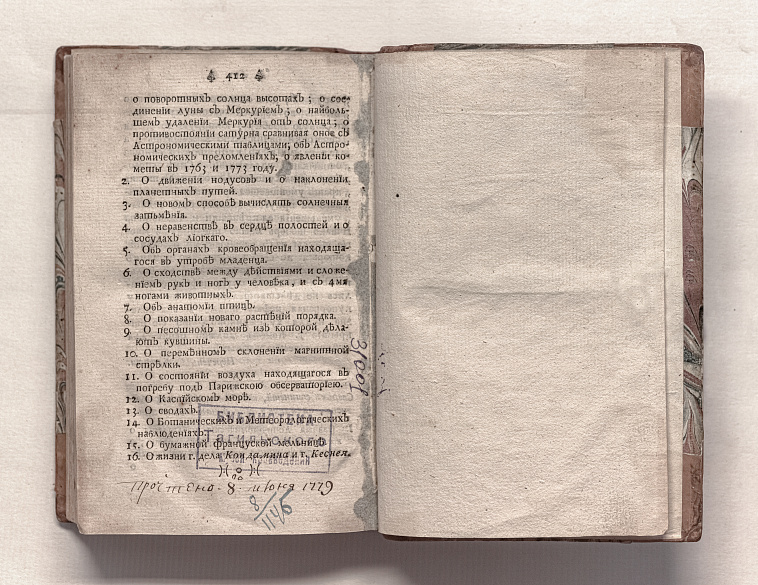 412
о поворотныхЪ солнца высотахЪ ; о сое-
диненіи луны сЪ Меркуріемъ ; о наиболь-
шемЪ удаленіи Меркурія отЪ солнца ; о
противостояніи сатурна сравнивая оное сЪ
Астрономическими таблицами; обЪ Астро-
номическихЪ преломленіяхЪ; о явленіи ко-
меты вЪ 1763 и 1773 году.
2. О движеніи нодусовЪ и о наклоненіи
планетныхЪ путей.
3. О новомЪ способѣ вычислять солнечныя
затьмѣнія.
4. О неравенствѣ вЪ сердцѣ полостей и о
сосудахЪ ліогкаго.
5. ОбЪ органахЪ кровеобращенія находяща-
гося вЪ утробѣ младенца.
6. О сходствѣ между дѣйствіями и сложе-
ніемЪ рукЪ и ногЪ у человѣка, и сЪ 4мя
ногами животныхЪ.
7. ОбЪ анатоміи птицЪ.
8. О показаніи новаго растѣній порядка.
9. О песошномЪ камнѣ изЪ которой дѣла-
ютЪ кувшины.
10. О перемѣнномЪ склоненіи магнитной
стрѣлки.
11. О состояніи воздуха находящагося вЪ
погребу подЪ Парижскою обсерваторіею.
12. О КаспійскомЪ морѣ.
13. О сводахЪ.
14. О БотаническихЪ и МетеорологическихЪ
наблюденіяхЪ.
15. О бумажной французской мельницѣ
16. О жизни г. дела Кондамина и г. Кеснея.
БИБЛИОТЕКА
Тагильского
прочтено. 8. июня 1779
8/1145
31001